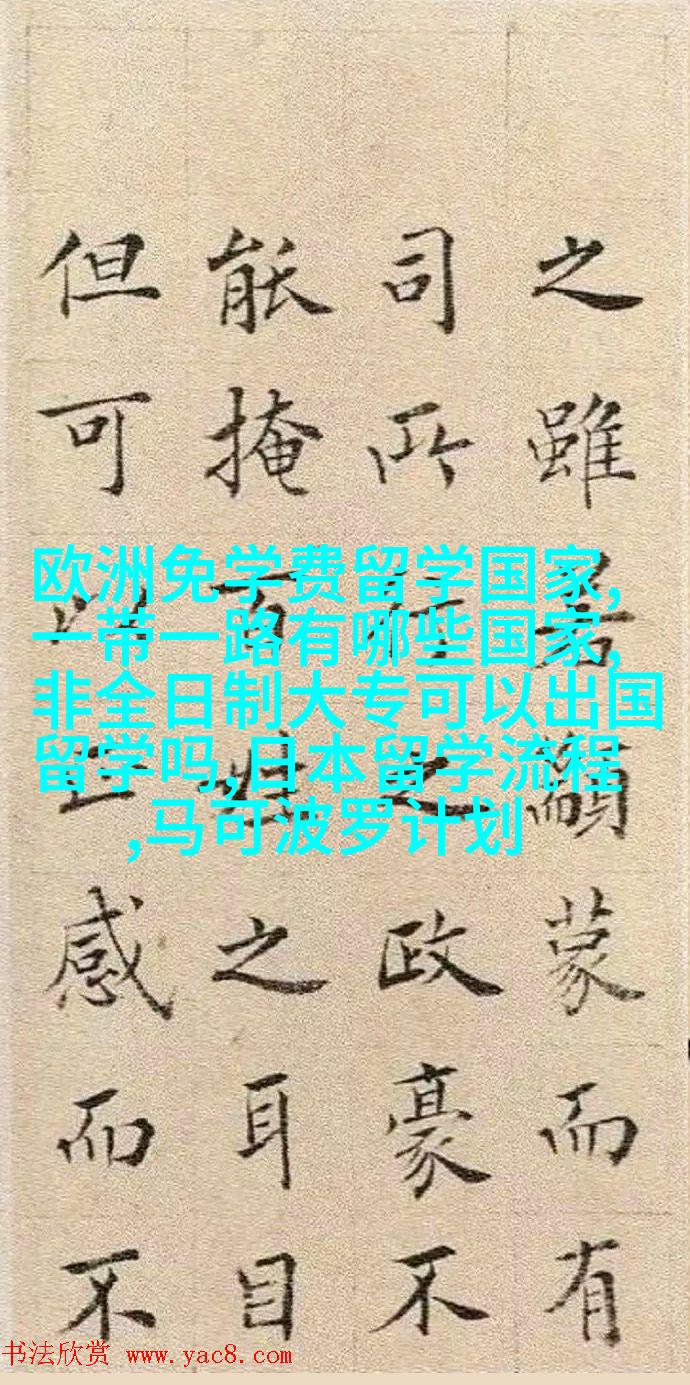 之雖若顓蒙而有
司所行之政豪不
能掩百姓之耳目
但可以上感而不
欧洲免学费留学国家,
一带一路有哪些国家,
非全日制大专可以出国
留学吗,日本留学流程
,马可波罗计划
书法欣赏 www.yac8.com